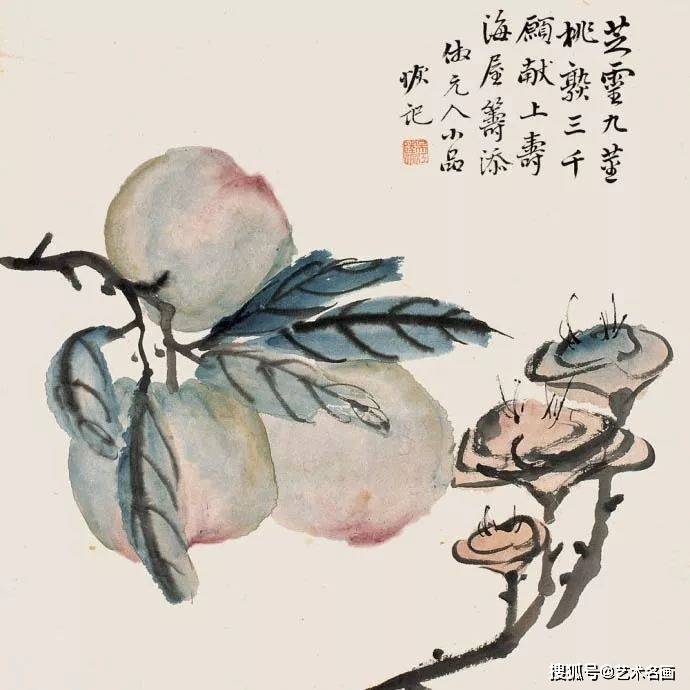 芝靈九莖
桃熟三千
願献上壽
海屋籌添
倣元人小品
暎記
搜狐号@艺术名画